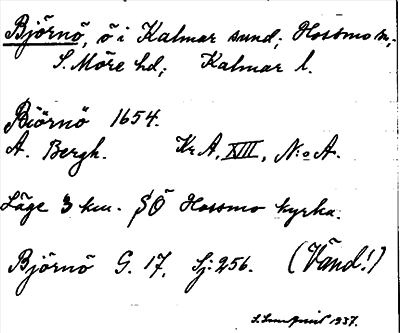 Björnö, ö i Kalmar sund; Hossmo sn;
S. Möre hd; Kalmar l.
Biörnö 1654.
A. Bergh. Kr. A, XIII, N:o A.
Läge 3 km. SÖ Hossmo kyrka.
Björnö G. 17, Sj: 256. (Vänd!)
1937.